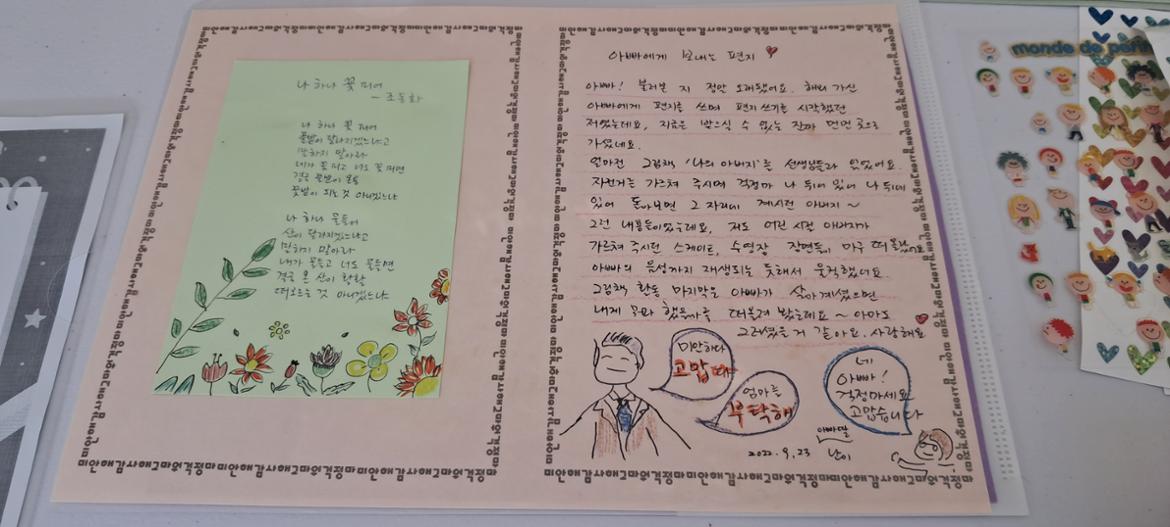 나 하나 꽃 피어
- 조동화
나 하나 꽃 피어
풀밭이 달라지겠느냐고
말하지 말아라
네가 꽃 피고 나도 꽃 피면
결국 풀밭이 온통
꽃밭이 되는 것 아니겠느냐
나 하나 물들어
산이 달라지겠느냐고
말하지 말아라
내가 물들고 너도 물들면
결국 온 산이 활활
타오르는 것 아니겠느냐
아빠에게 보내는 편지
아빠! 불러본 지 정말 오래됐어요. 해외 가신
아빠에게 편지를 쓰며 편지쓰기를 시작했던
저였는데요, 지금은 받으실 수 없는 진짜 먼먼 곳으로
가셨네요.
얼마전 그림책 '나의 아버지'를 선생님들과 읽었어요.
자전거를 가르쳐 주시며 걱정마 나 뒤에 있어 나 뒤에
있어 돌아보면 그 자리에 계시던 아버지~
그런 내용들이었는데요, 저도 어린 시절 아버지가
가르쳐 주시던 스케이트, 수영장 장면들이 마구 떠올랐어요
아빠의 음성까지 재생되는 듯해서 뭉클했네요.
그림책 활동 마지막은 아빠가 살아계셨으면
내게 뭐라 했을까를 떠올려 봤는데요~ 아마도
그러셨을 거 같아요. 사랑해요
미안하다
고맙다
엄마를
부탁해
네
아빠!
걱정마세요
고맙습니다
아빠딸
2022. 9. 23 난이
monde de
미안해감사해고마워걱정마